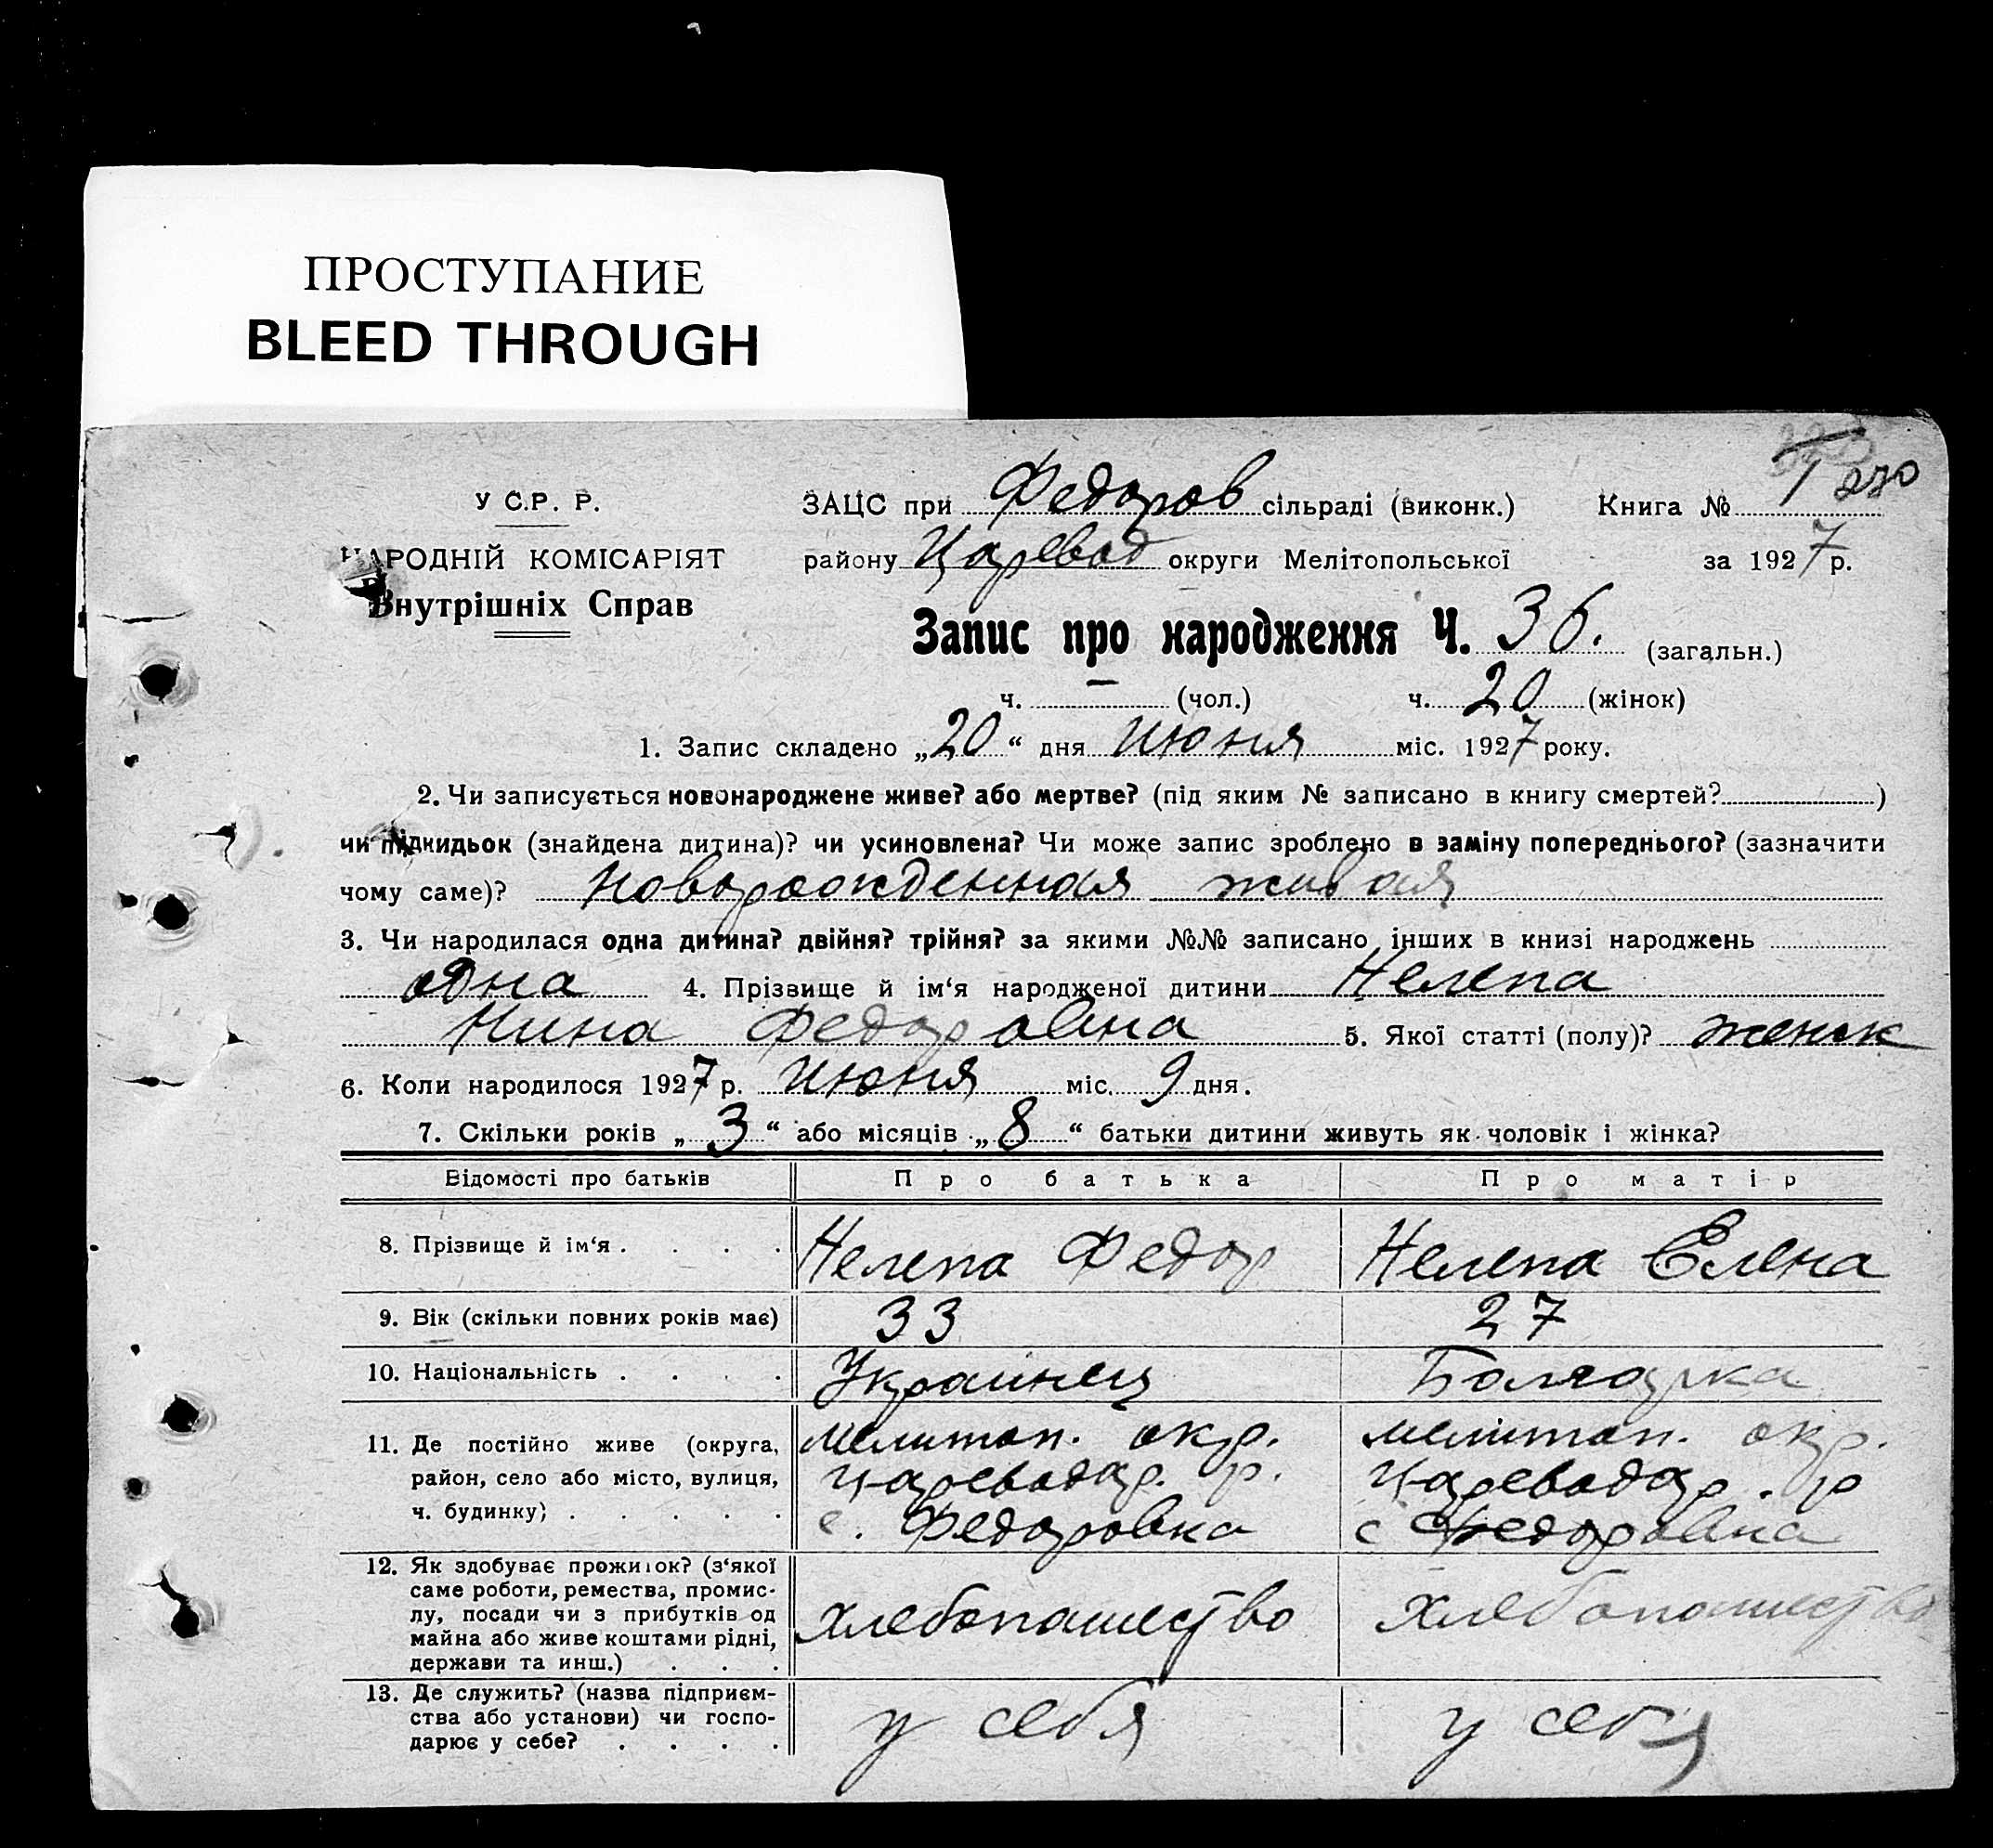 ПРОСТУПАНИЕ
BLEED THROUGH
У С.Р. Р.
НАРОДНІЙ КОМІСАРІЯТ
Внутрішніх Справ
ЗАЦС при Федоров сільраді (виконк.) Книга № 1 230
району Царевод округи Мелітопольської за 1927 р.
Запис про народження Ч. 36. (загальн.)
ч. — (чол.) ч. 20 (жінок)
1. Запис складено „20“ дня Июня міс. 1927 року.
2. Чи записується новонароджене живе? або мертве? (під яким № записано в книгу смертей?)
чи підкидьок (знайдена дитина)? чи усиновлена? Чи може запис зроблено в заміну попереднього? (зазначити
чому саме)? Новорожденная живая
3. Чи народилася одна дитина? двійня? трійня? за якими №№ записано інших в книзі народжень
одна 4. Прізвище й ім‘я народженої дитини Нелепа
Нина Федоровна 5. Якої статті (полу)? женск
6. Коли народилося 1927 р. Июня міс. 9 дня.
7. Скільки років „3“ або місяців „8“ батьки дитини живуть як чоловік і жінка?
Відомості про батьків Про батька Про матір
8. Прізвище й ім‘я . . . . Нелепа Федор Нелепа Елена
9. Вік (скільки повних років має) 33 27
10. Національність . . . . Украинец Болгарка
11. Де постійно живе (округа, мелитоп. окр. мелитоп. окр.
район, село або місто, вулиця, Цареводар. р. Цареводар. р
ч. будинку) . . . . . с. Федоровка с Федоровка
12. Як здобуває прожиток? (з‘якої
саме роботи, ремества, промис-
лу, посади чи з прибутків од хлебопашество хлебопашество
майна або живе коштами рідні,
держави та инш.) . . .
13. Де служить? (назва підприєм-
ства або установи) чи госпо- у себя у себя
дарює у себе? . . . .